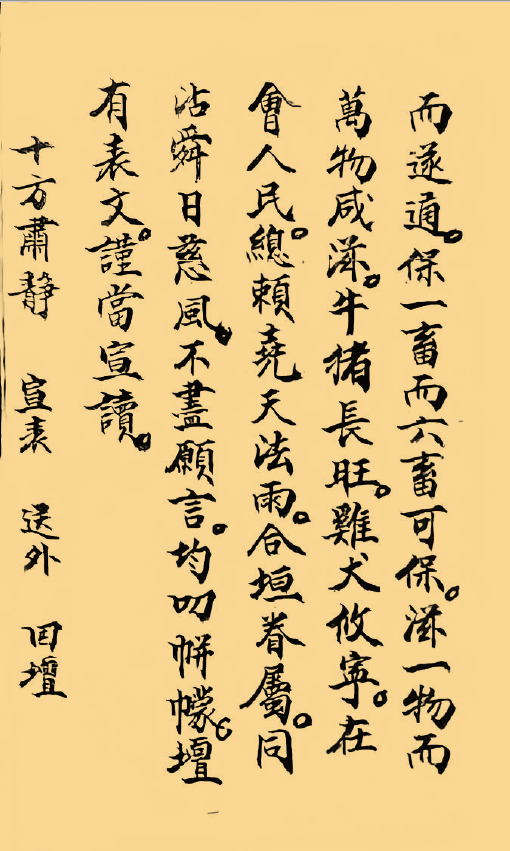 而遂通。保一畜而六畜可保。滋一物而
萬物咸滋。牛猪長旺。雞犬攸寧。在
會人民。總賴堯天法雨。合垣眷屬。同
沾舜日慈風。不盡願言。均叨帡幪。壇
有表文。謹當宣讀。
十方肅靜　宣表　送外　回壇